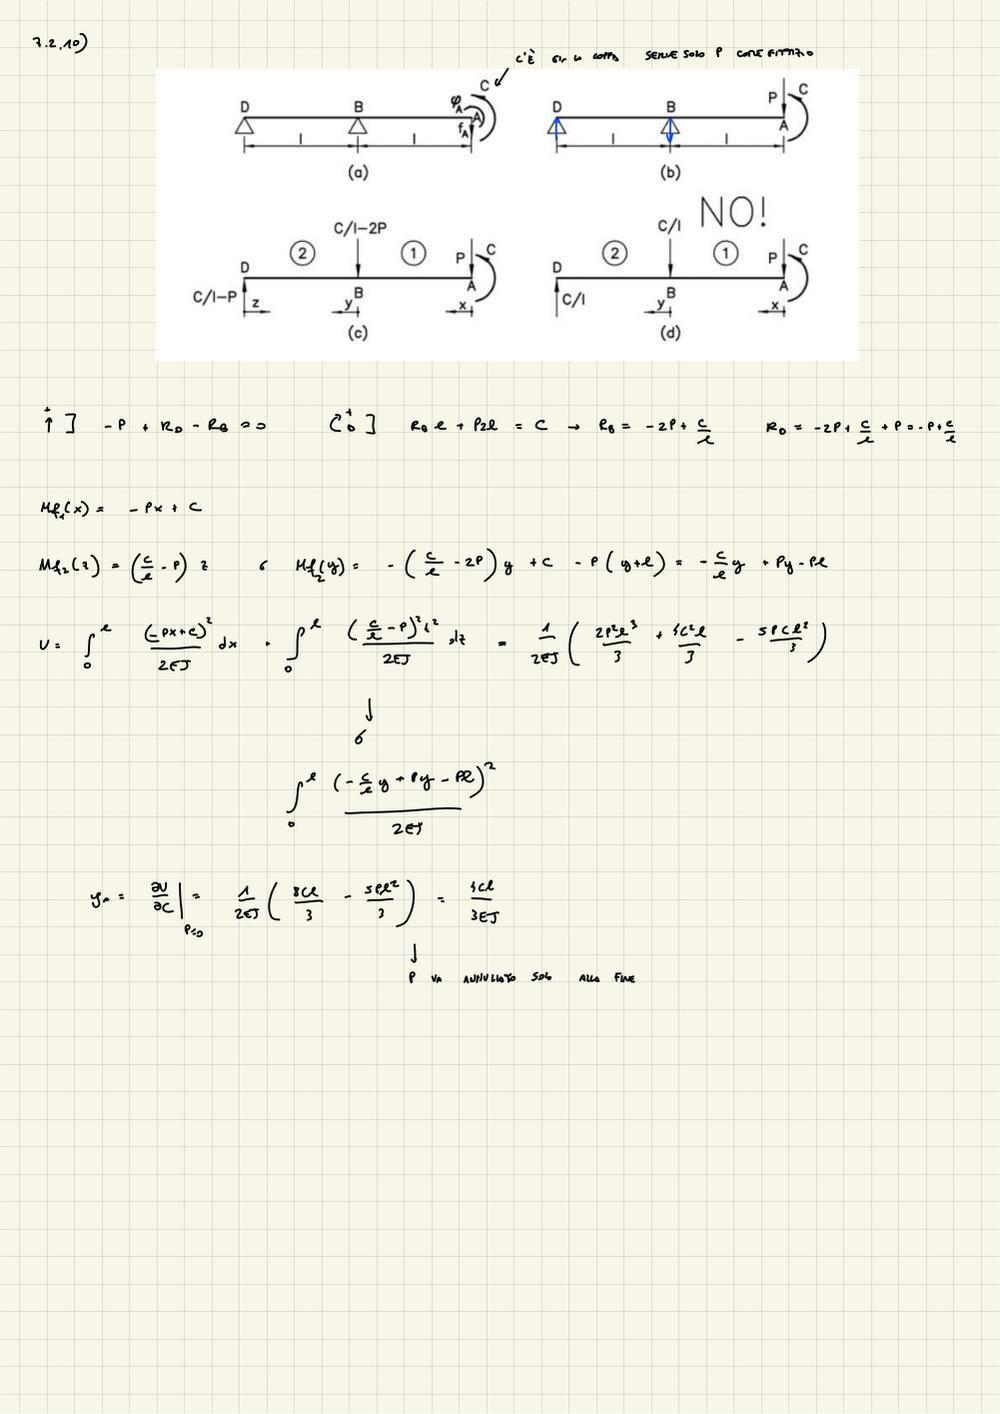 7.2.10)
C'È GIÀ LA COPPIA SERVE SOLO P COME FITTIZIO
D B φA A fA C
l l
(a)
D B P C A
l l
(b)
C/l-2P
2 1 P C
D B A
C/l-P z y x
(c)
NO!
C/l
2 1 P C
D B A
C/l y x
(d)
+↑] -P + RD - RB = 0 RB l + P2l = C → RB = -2P + C/l RD = -2P + C/l + P = -P + C/l
Mf1(x) = -Px + C
Mf2(z) = (C/l - P) z o Mf2(y) = -(C/l - 2P) y + C - P(y+l) = -C/l y + Py - Pl
U = ∫0^l (-Px+C)²/2EJ dx + ∫0^l (C/l - P)² z²/2EJ dz = 1/2EJ (2P²l³/3 + 4C²l/3 - 5PCl²/3)
↓
o
∫0^l (-C/l y + Py - Pl)²/2EJ
φA = ∂U/∂C |P=0 = 1/2EJ (8Cl/3 - 5Pl²/3) = 4Cl/3EJ
↓
P VA ANNULLATO SOLO ALLA FINE